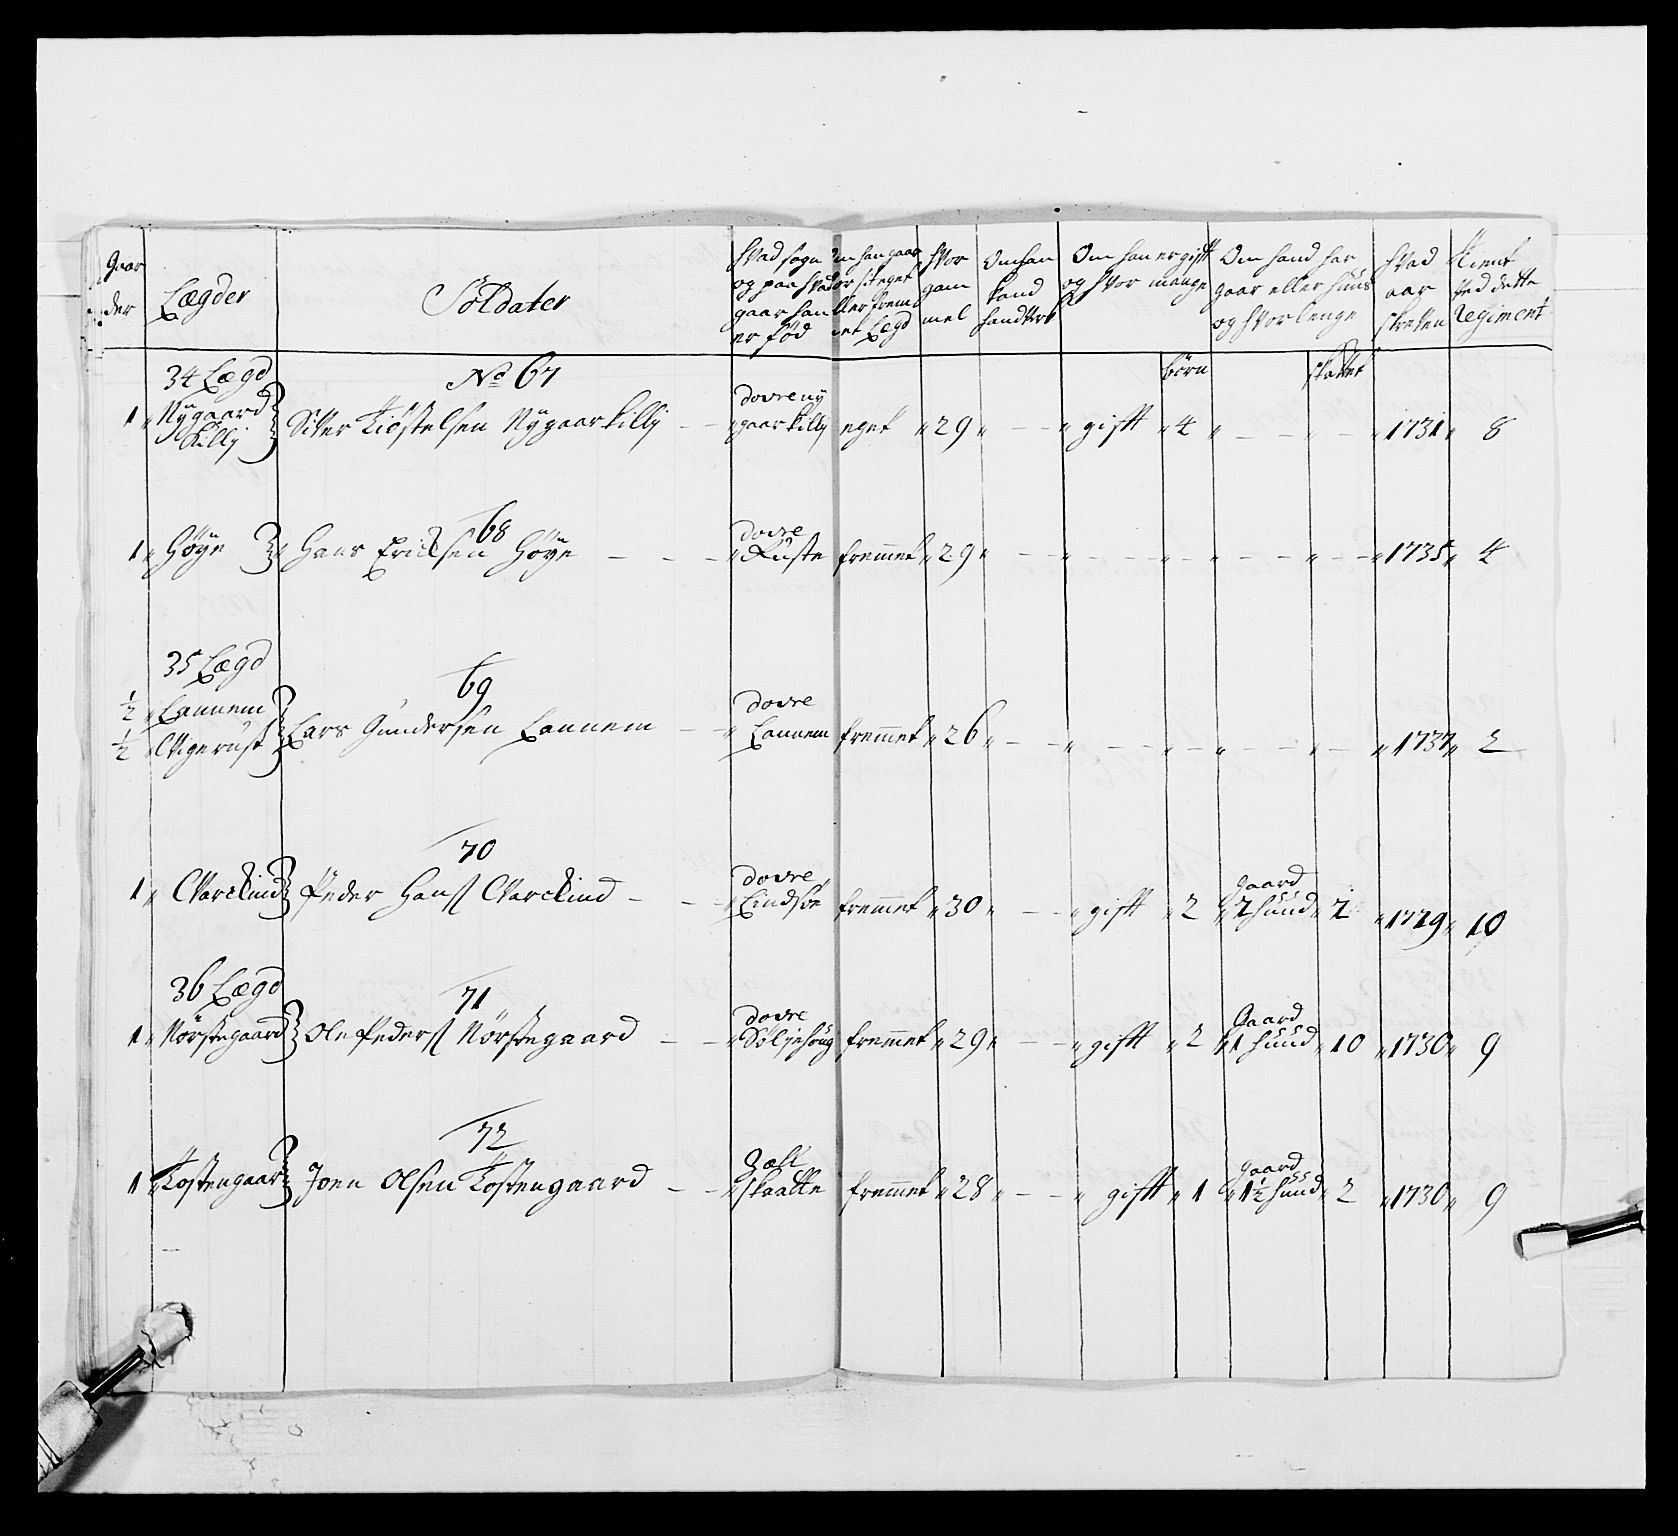 Gaar
der
Lægder
Soldater
hvad sogn
og paa hvad
gaar han
er fød
om han gaar
for sit eget
eller frem
met Lægd
hvor
gam
mel
Om han
kand
handverk
Om han er gift
og hvor mange
börn
Om hand har
gaar eller huus
og hvor lenge
skattet
hvad
aar
skreven
tient
ved dette
Regiment
34 Lægd
No 67
1 Nygaard
Killj
Siver Kiöstelsen Nygaarkillj
dovre ny
gaarkillj eget 29 gift 4 1731 8
68
1 Höye Hans Ericksen Höye
dovre
Kuste fremmet 29 1735 4
35 Lægd
69
½ Lannem
½ Vigerust
Lars Gundersen Lannem
dovre
Lannem fremmet 26 1737 2
70
1 Varckind Peder Hans Varckind
dovre
Lindsöe fremmet 30 gift 2 gaard
huud 1729 10
36 Lægd
71
1 Nörstegaard Ole Peders Nörstegaard
dovre
Söljehoug fremmet 29 gift 2 Gaard
1 huud 10 1730 9
72
1 Tostengaar Joen Olsen Tostengaard
skaatte fremmet 28 gift 1 gaard
1½ huud 2 1730 9